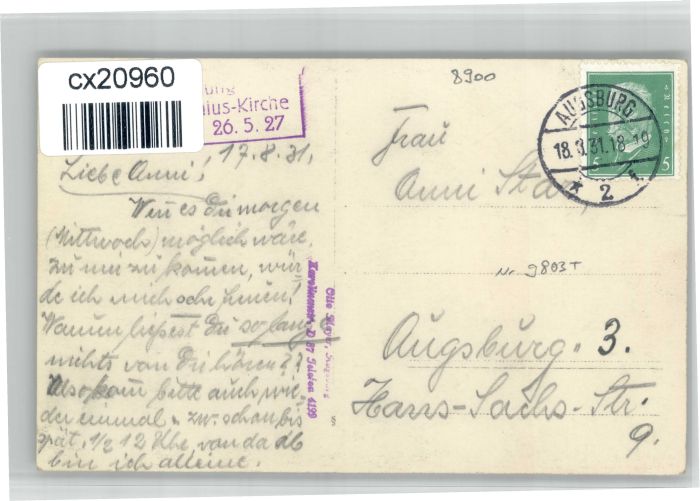 cx20960
ius-Kirche
26. 5. 27
17.8.31.
Liebe Anni!
Wenn es Dir morgen
(Mittwoch) möglich wäre,
zu mir zu kommen, wür-
de ich mich sehr freuen!
Warum liesest Du so lange
nichts von Dir hören??
Also kom bitte auch wie
der einmal u. zw. schon bis
spät. 1/2 12 Uhr, von da ab
bin ich alleine.
Otto
D 87 Telefon 4199
8900
AUGSBURG
18.8.31.18-19
* 2
5
5
Frau
Anni
Nr 9803T
Augsburg. 3.
Hans-Sachs-Str.
9.